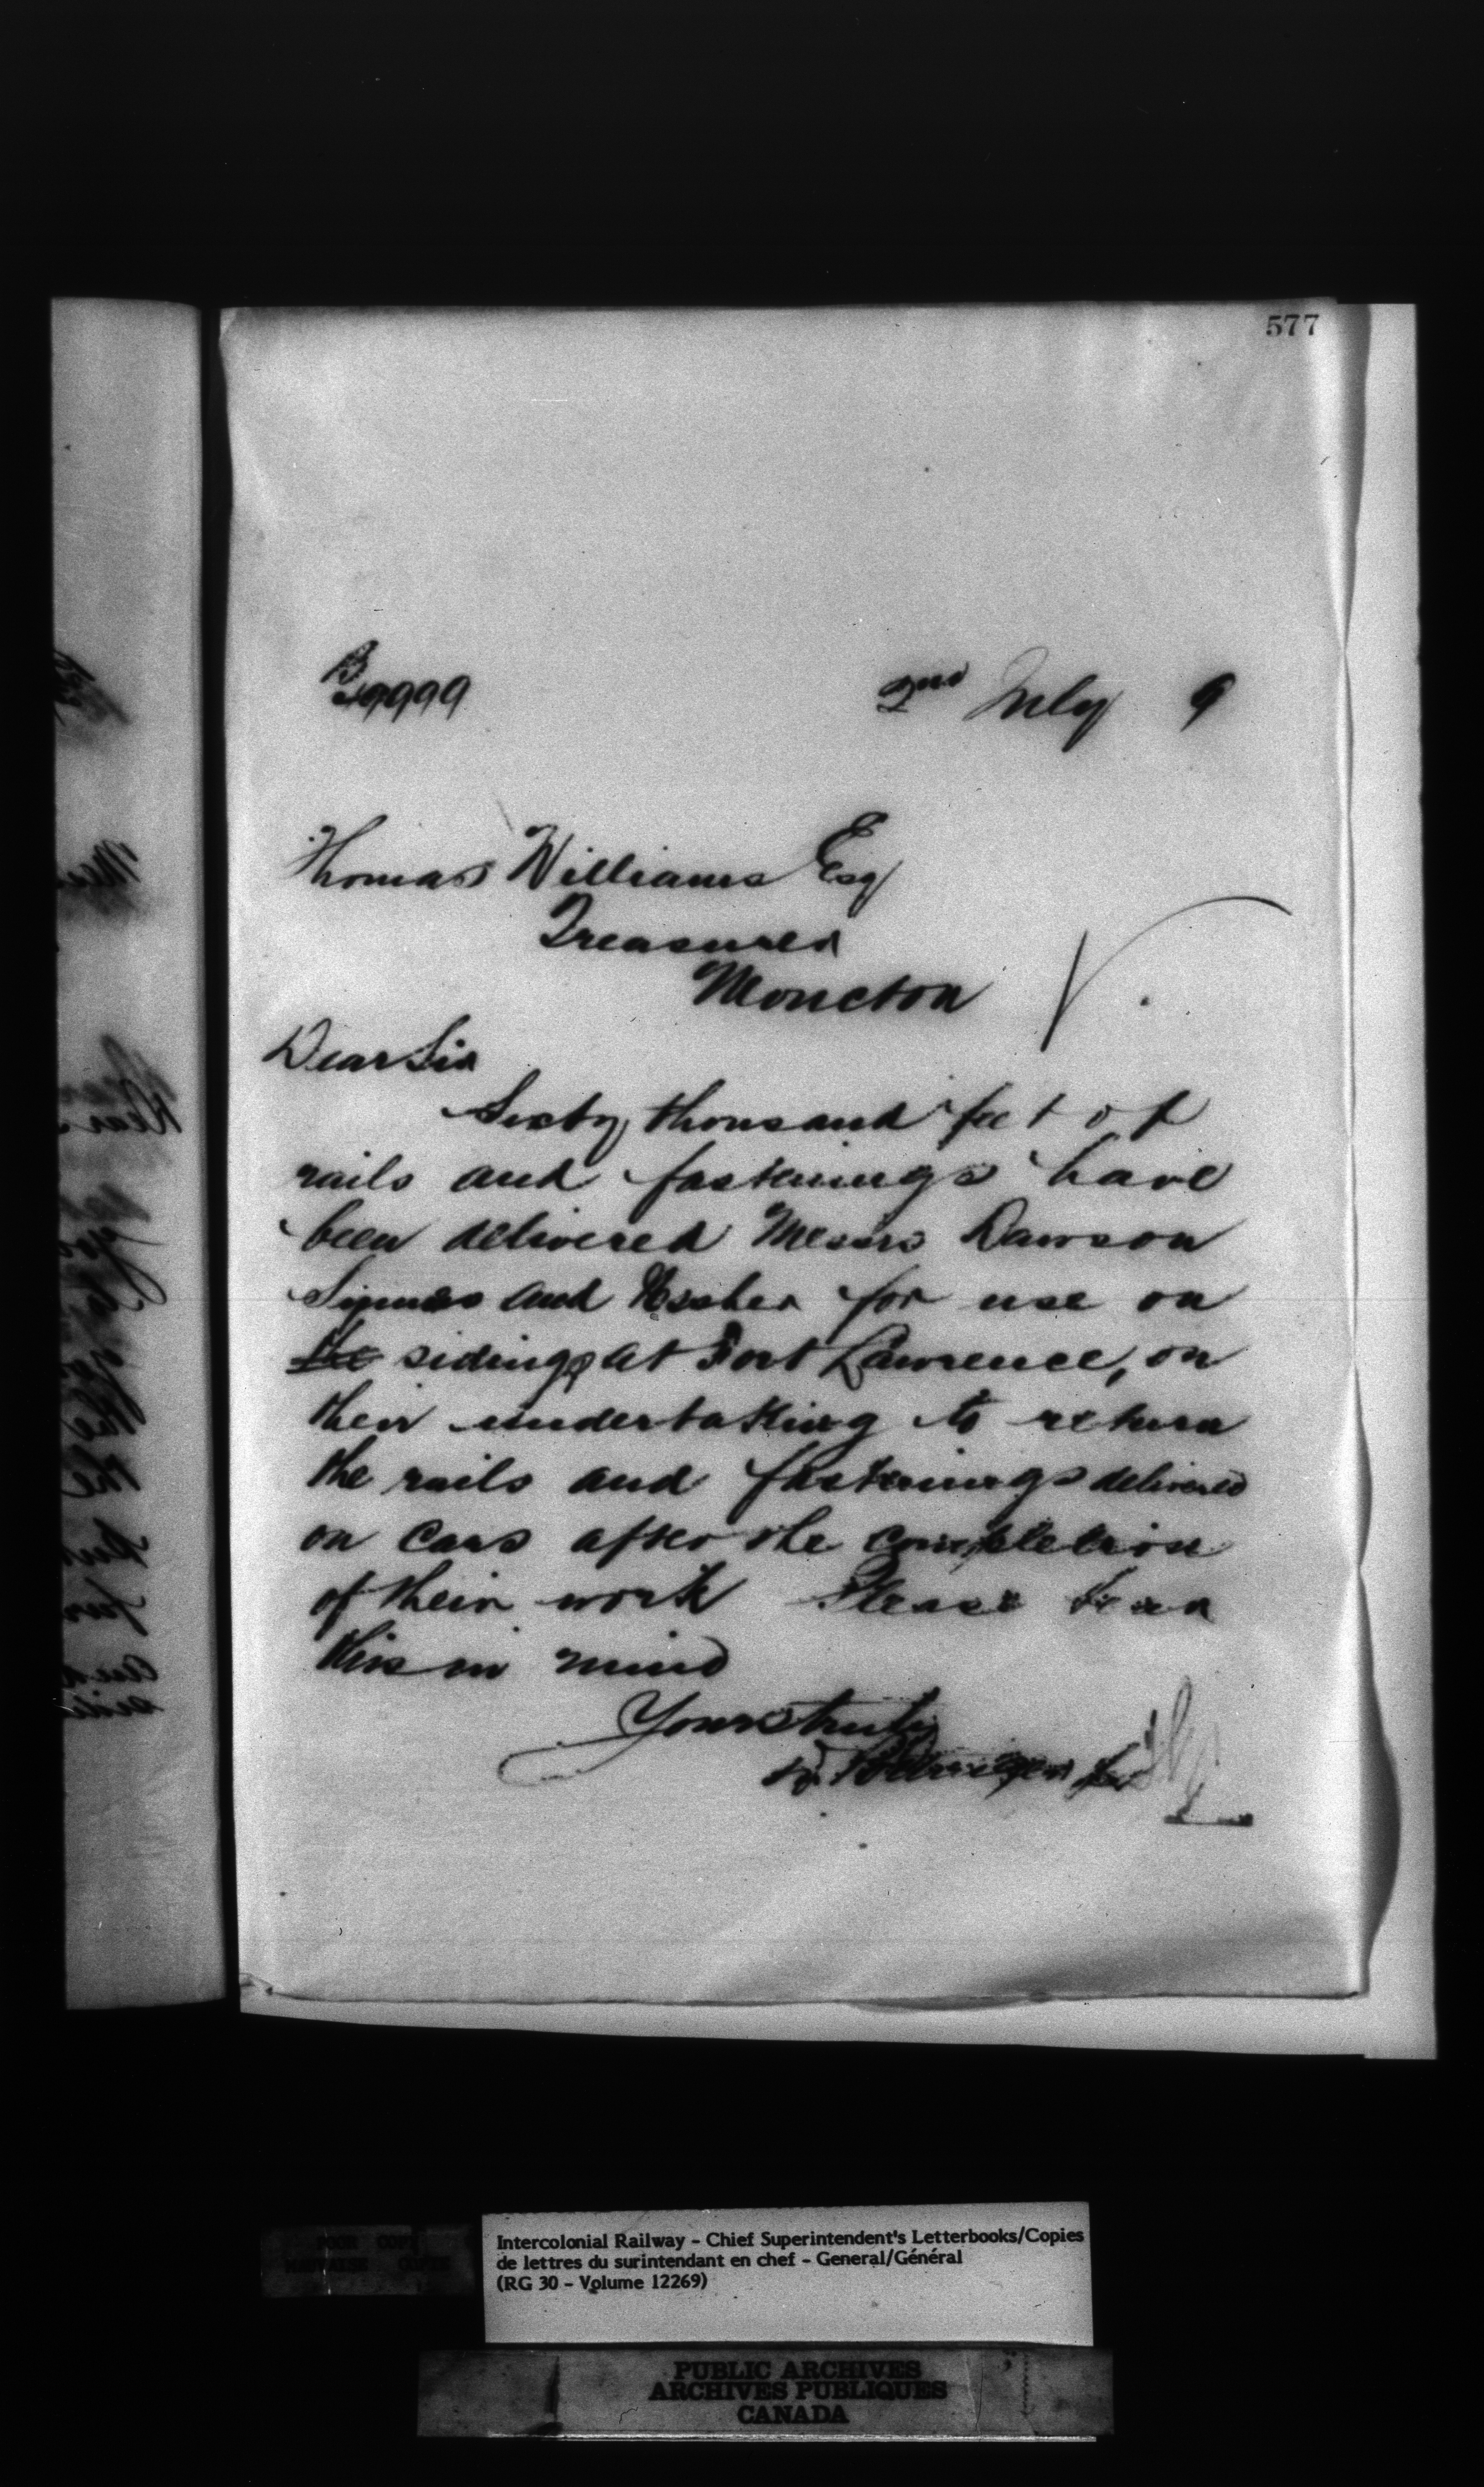 577
B 49999
2nd July 9
Thomas Williams Esq
Treasurer
Moncton
Dear Sir
Sixty thousand feet of
rails and fastenings have
been delivered Messrs Dawson
Symmes and Ussher for use on
the sidings at Fort Lawrence, on
their undertaking to return
the rails and fastenings delivered
on cars after the completion
of their work Please bear
this in mind
Yours truly
D. Pottinger
Intercolonial Railway - Chief Superintendent's Letterbooks/Copies
de lettres du surintendant en chef - General/Général
(RG 30 - Volume 12269)
POOR COPY
MAUVAISE COPIE
PUBLIC ARCHIVES
ARCHIVES PUBLIQUES
CANADA